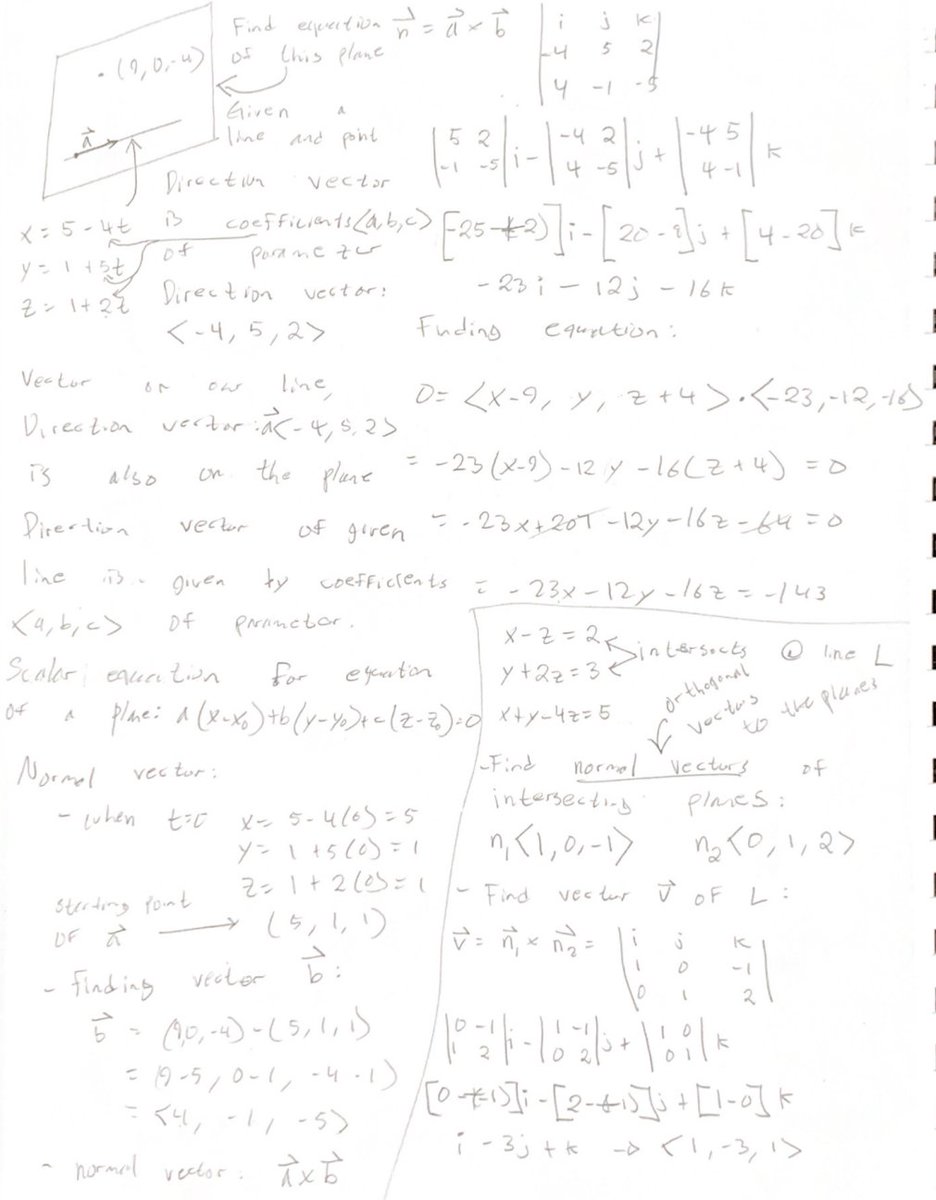 Find equation
of this plane
. (9,0,-4)
Given a
line and point
a⃗
Direction vector
is coefficients <a,b,c>
of parameter
x = 5 - 4t
y = 1 + 5t
z = 1 + 2t
Direction vector:
<-4, 5, 2>
Vector on our line,
Direction vector: a⃗<-4, 5, 2>
is also on the plane
Direction vector of given
line is given by coefficients
<a,b,c> of parameter.
Scalar equation for equation
of a plane: a(x-x₀)+b(y-y₀)+c(z-z₀)=0
Normal vector:
- when t=0 x= 5-4(0)=5
y= 1+5(0)=1
z= 1+2(0)=1
starting point
of a⃗ → (5, 1, 1)
- finding vector b⃗:
b⃗ = (9,0,-4)-(5,1,1)
= (9-5, 0-1, -4-1)
= <4, -1, -5>
- normal vector: a⃗ x b⃗
n⃗ = a⃗ x b⃗
| i j k |
| -4 5 2 |
| 4 -1 -5 |
| 5 2 | | -4 2 | | -4 5 |
| -1 -5 | i - | 4 -5 | j + | 4 -1 | k
[-25+2]i - [20-8]j + [4-20]k
-23i - 12j - 16k
Finding equation:
0= <x-9, y, z+4>·<-23,-12,-16>
= -23(x-9)-12y-16(z+4) = 0
= -23x+207-12y-16z-64=0
= -23x-12y-16z = -143
x-z=2
y+2z=3
intersects @ line L
x+y-4z=5
orthogonal
vectors
to the planes
- Find normal vectors of
intersecting planes:
n₁<1,0,-1> n₂<0, 1, 2>
- Find vector v⃗ of L:
v⃗ = n⃗₁ x n⃗₂ =
| i j k |
| 1 0 -1 |
| 0 1 2 |
| 0 -1 | | 1 -1 | | 1 0 |
| 1 2 | i - | 0 2 | j + | 0 1 | k
[0+1)]i-[2-1)]j+[1-0]k
i - 3j + k → <1, -3, 1>